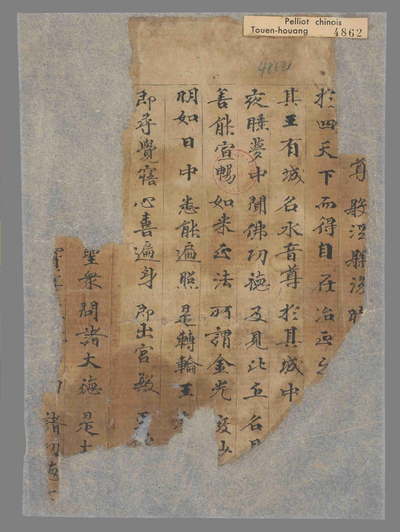 Pelliot chinois
Touen-houang
4862
4862
尊般涅槃後時
於四天下而得自在治正之
其王有城名水音尊於其城中
夜睡夢中聞佛功德及見比丘名曰
善能宣暢如來正法所謂金光微妙
明如日中悉能遍照是轉輪王
即尋覺寤心喜遍身即出宮殿至
聖眾問諸大德是大
諸功德